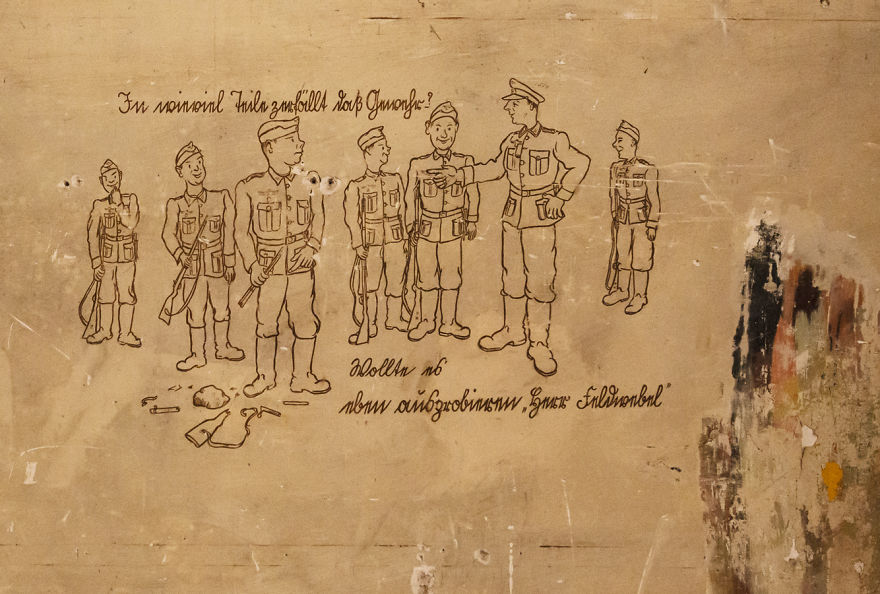 In wieviel Teile zerfällt daß Gewehr?
Wollte es
eben ausprobieren „Herr Feldwebel"